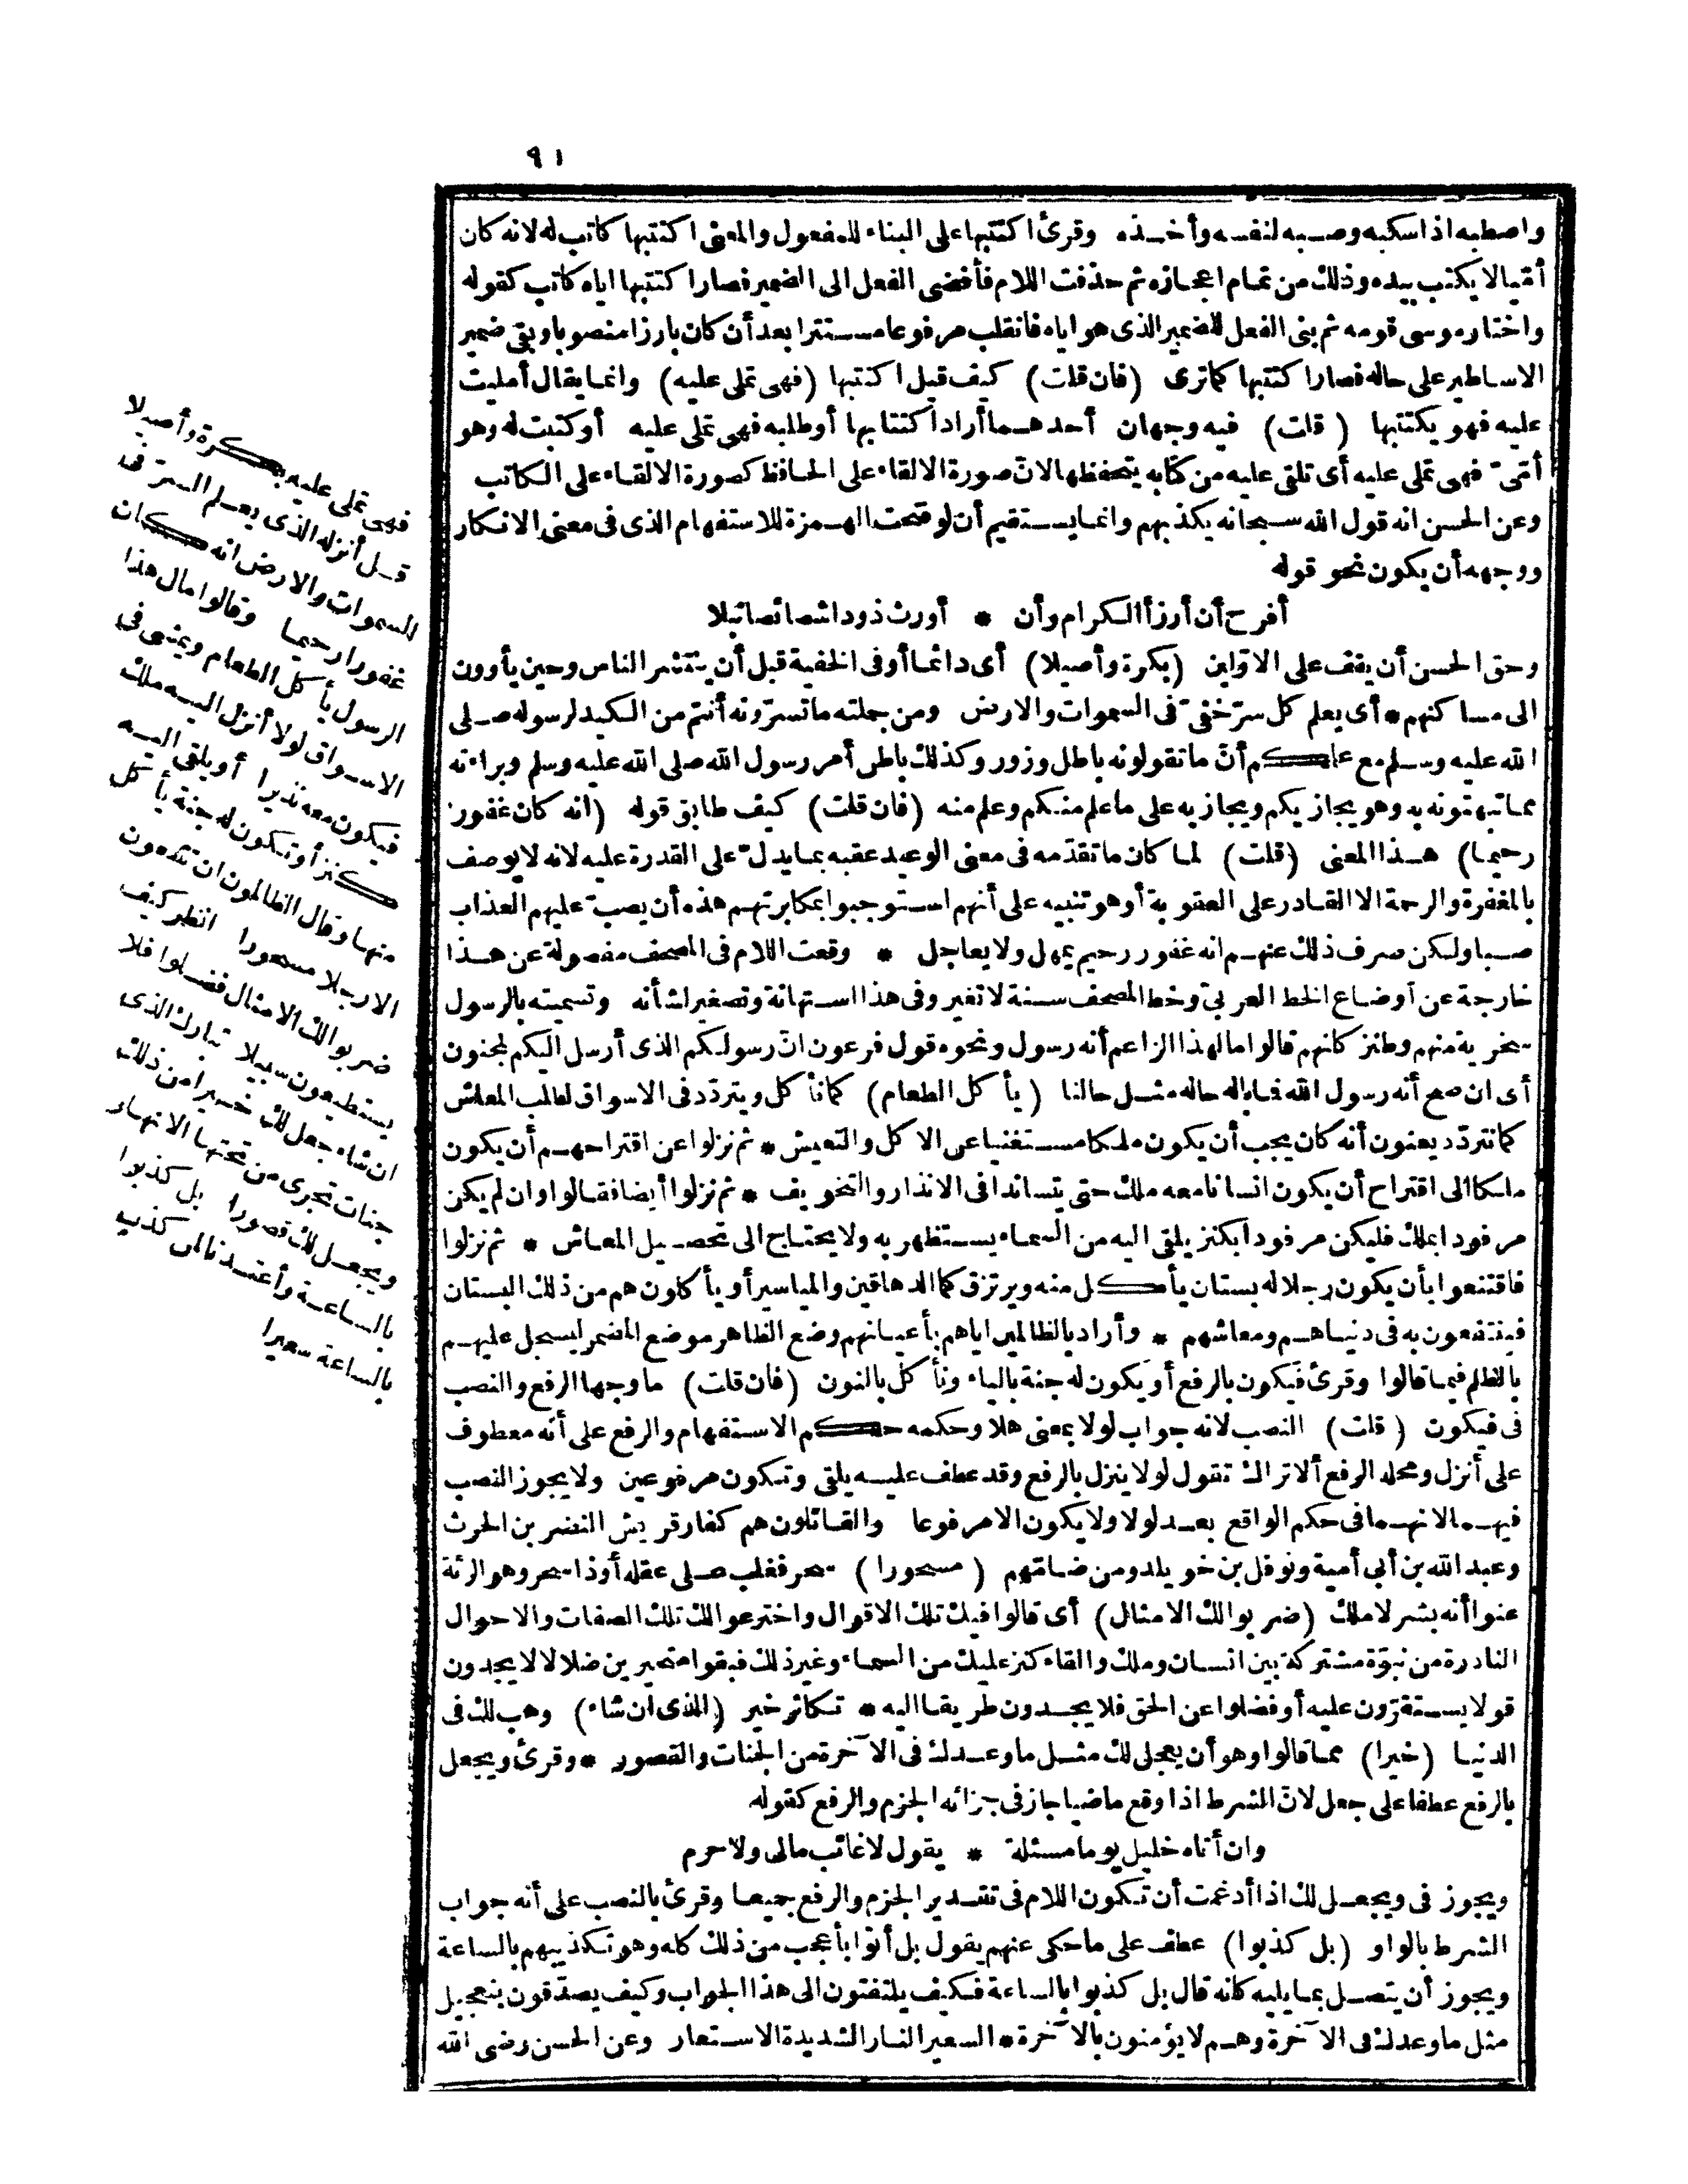 ٩١
واصطبه اذا سكبه وصبه لنفسه وأخذه وقرئ اكتتبها على البناء للمفعول والمعنى اكتتبها كاتب له لانه كان
أميالا يكتب بيده وذلك من تمام اعجازه ثم حذفت اللام فأفضى الفعل الى الضمير فصار اكتتبها اياه كاتب كقوله
واختار موسى قومه ثم بنى الفعل للضمير الذى هو اياه فانقلب مرفوعا مستترا بعد أن كان بارزا منصوبا وبقى ضمير
الاساطير على حاله فصار اكتتبها كما ترى (فان قلت) كيف قيل اكتتبها (فهى تملى عليه) وانما يقال أمليت
عليه فهو يكتتبها (قلت) فيه وجهان أحدهما أراد اكتتابها أو طلبه فهى تملى عليه أو كتبت له وهو
أمّىّ فهى تملى عليه أى تلقى عليه من كتابه يتحفظها لانّ صورة الالقاء على الحافظ كصورة الالقاء على الكاتب
وعن الحسن انه قول الله سبحانه يكذبهم وانما يستقيم أن لو فتحت الهمزة للاستفهام الذى فى معنى الانكار
ووجهه أن يكون نحو قوله
أفرح أن أرزأ الكرام وأن * أورث ذودا شصائصا نبلا
وحق الحسن أن يقف على الاوّلين (بكرة وأصيلا) أى دائما أو فى الخفية قبل أن ينتشر الناس وحين يأوون
الى مساكنهم * أى يعلم كل سرّ خفىّ فى السموات والارض ومن جملته ما تسرّونه أنتم من الكيد لرسوله صلى
الله عليه وسلم مع علمكم أنّ ما تقولونه باطل وزور وكذلك باطن أمر رسول الله صلى الله عليه وسلم وبراءته
مما تبهتونه به وهو يجازيكم ويجازيه على ما علم منكم وعلم منه (فان قلت) كيف طابق قوله (انه كان غفورا
رحيما) هذا المعنى (قلت) لما كان ما تقدّمه فى معنى الوعيد عقبه بما يدلّ على القدرة عليه لانه لا يوصف
بالمغفرة والرحمة الا القادر على العقوبة أو هو تنبيه على أنهم استوجبوا بمكابرتهم هذه أن يصبّ عليهم العذاب
صبا ولكن صرف ذلك عنهم انه غفور رحيم يمهل ولا يعاجل * وقعت اللام فى المصحف مفصولة عن هذا
خارجة عن أوضاع الخط العربىّ وخط المصحف سنة لا تغير وفى هذا استهانة وتصغير لشأنه وتسميته بالرسول
سخرية منهم وطنز كانهم قالوا ما لهذا الزاعم أنه رسول ونحوه قول فرعون انّ رسولكم الذى أرسل اليكم لمجنون
أى ان صح أنه رسول الله فما باله حاله مثل حالنا (يأكل الطعام) كما نأكل ويتردّد فى الاسواق لطلب المعاش
كما نتردّد يعنون أنه كان يجب أن يكون ملكا مستغنيا عن الاكل والتعيش * ثم نزلوا عن اقتراحهم أن يكون
ملكا الى اقتراح أن يكون انسانا معه ملك حتى يتساندا فى الانذار والتخويف * ثم نزلوا أيضا فقالوا وان لم يكن
مرفودا بملك فليكن مرفودا بكنز يلقى اليه من السماء يستظهر به ولا يحتاج الى تحصيل المعاش * ثم نزلوا
فاقتنعوا بأن يكون رجلا له بستان يأكل منه ويرتزق كما الدهاقين والمياسير أو يأكلون هم من ذلك البستان
فينتفعون به فى دنياهم ومعاشهم * وأراد بالظالمين اياهم بأعيانهم وضع الظاهر موضع المضمر ليسجل عليهم
بالظلم فيما قالوا وقرئ فيكون بالرفع أو يكون له جنة بالياء ونأكل بالنون (فان قلت) ما وجها الرفع والنصب
فى فيكون (قلت) النصب لانه جواب لولا بمعنى هلا وحكمه حكم الاستفهام والرفع على أنه معطوف
على أنزل ومحله الرفع ألا تراك تقول لولا ينزل بالرفع وقد عطف عليه يلقى وتكون مرفوعين ولا يجوز النصب
فيهما لانهما فى حكم الواقع بعد لولا ولا يكون الا مرفوعا والقائلون هم كفار قريش النضر بن الحرث
وعبد الله بن أبى أمية ونوفل بن خويلد ومن ضامّهم (مسحورا) سحر فغلب على عقله أو ذا سحر وهو الرئة
عنوا أنه بشر لا ملك (ضربوا لك الامثال) أى قالوا فيك تلك الاقوال واخترعوا لك تلك الصفات والاحوال
النادرة من نبوّة مشتركة بين انسان وملك والقاء كنز عليك من السماء وغير ذلك فبقوا متحيرين ضلالا لا يجدون
قولا يستقرّون عليه أو فضلوا عن الحق فلا يجدون طريقا اليه * تكاثر خير (الذى ان شاء) وهب لك فى
الدنيا (خيرا) مما قالوا وهو أن يعجل لك مثل ما وعدك فى الآخرة من الجنات والقصور * وقرئ ويجعل
بالرفع عطفا على جعل لانّ الشرط اذا وقع ماضيا جاز فى جزائه الجزم والرفع كقوله
وان أتاه خليل يوم مسئلة * يقول لا غائب مالى ولا حرم
ويجوز فى ويجعل لك اذا أدغمت أن تكون اللام فى تقدير الجزم والرفع جميعا وقرئ بالنصب على أنه جواب
الشرط بالواو (بل كذبوا) عطف على ما حكى عنهم يقول بل أتوا بأعجب من ذلك كله وهو تكذيبهم بالساعة
ويجوز أن يتصل بما يليه كانه قال بل كذبوا بالساعة فكيف يلتفتون الى هذا الجواب وكيف يصدّقون بتعجيل
مثل ما وعدك فى الآخرة وهم لا يؤمنون بالآخرة * السعير النار الشديدة الاستعار وعن الحسن رضى الله
فهى تملى عليه بكرة وأصيلا
قل أنزله الذى يعلم السرّ فى
السموات والارض انه كان
غفورا رحيما وقالوا مال هذا
الرسول يأكل الطعام ويمشى فى
الاسواق لولا أنزل اليه ملك
فيكون معه نذيرا أو يلقى اليه
كنز أو تكون له جنة يأكل
منها وقال الظالمون ان تتبعون
الا رجلا مسحورا انظر كيف
ضربوا لك الامثال فضلوا فلا
يستطيعون سبيلا تبارك الذى
ان شاء جعل لك خيرا من ذلك
جنات تجرى من تحتها الانهار
ويجعل لك قصورا بل كذبوا
بالساعة وأعتدنا لمن كذب
بالساعة سعيرا